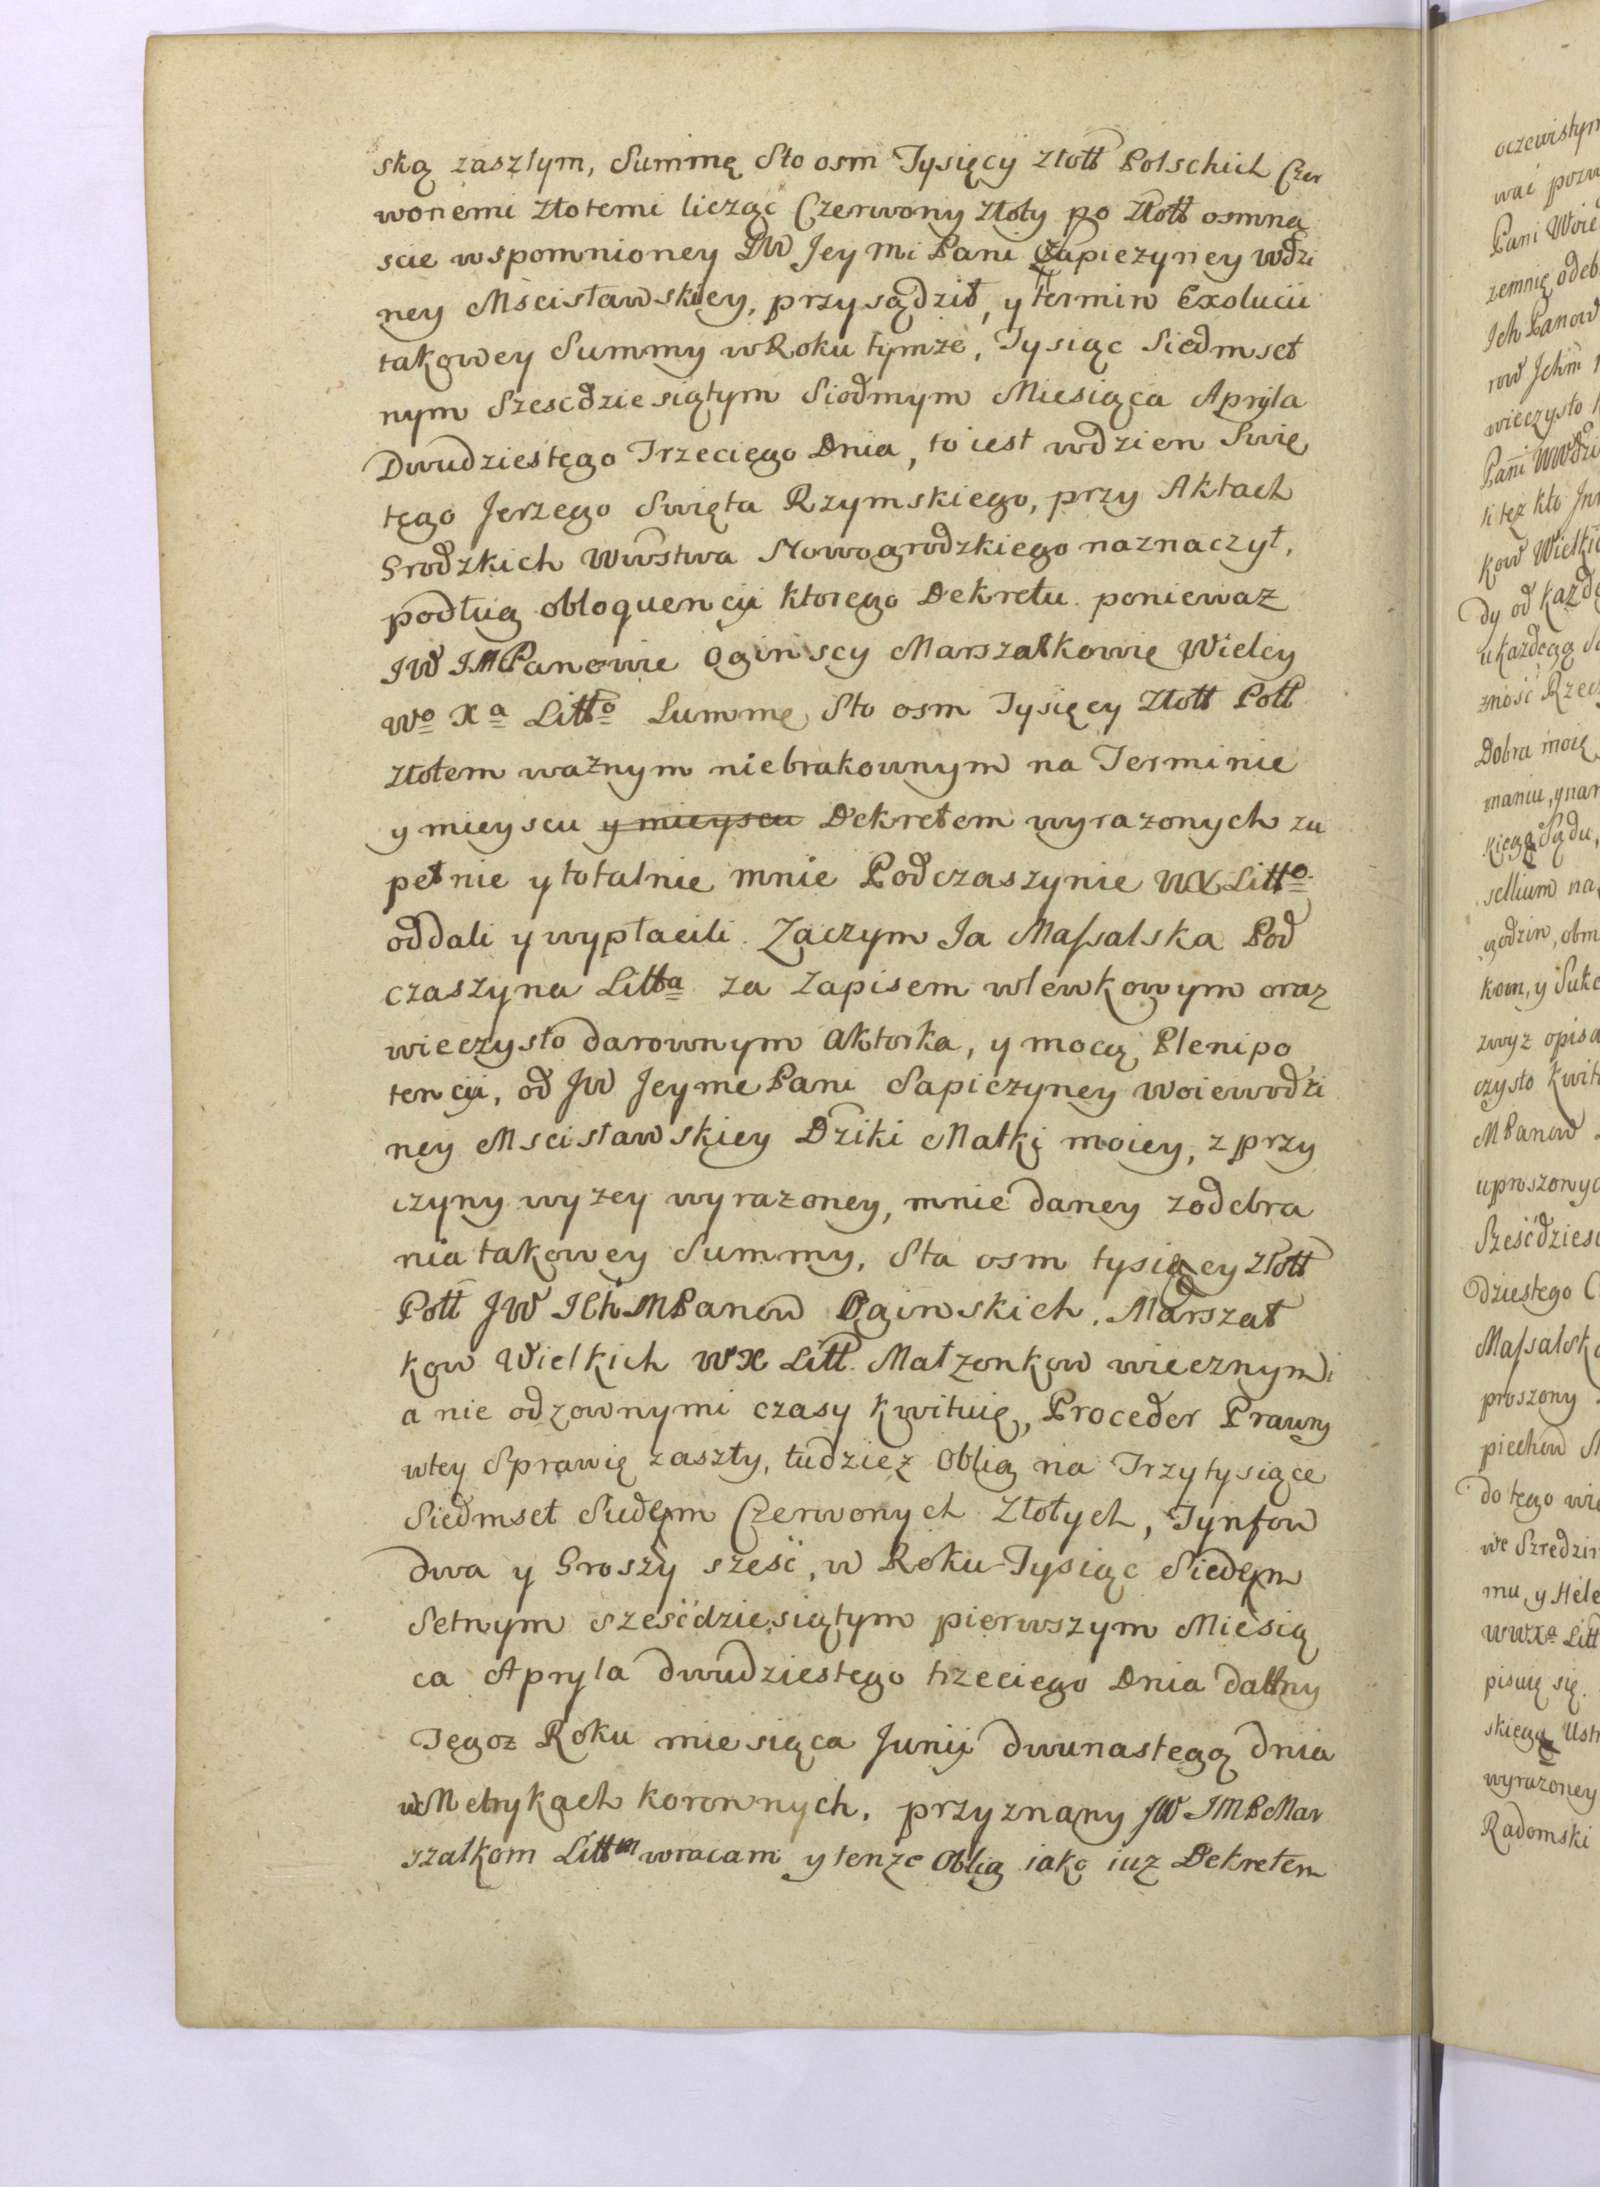 ską zaszłym, Summę Sto osm Tysięcy złott Polschich Czer
wonemi złotemi licząc Czerwony złoty po złott osmną
scie wspomnioney JW Jeymi Pani Sapiezyney wdzi
ney Mscisławskiey, przysądził, y termin Exolucii
takowey Summy w Roku tymze, Tysiąc Siedmset
nym Szescdziesiątym Siodmym Miesiąca Apryla
Dwudziestego Trzeciego Dnia, to iest wdzien Swię
tego Jerzego Swięta Rzymskiego, przy Aktach
Grodzkich Wwstwa Nowogrodzkiego naznaczył,
podług obloquencyi ktorego Dekretu poniewaz
JW JMPanowie Oginscy Marszałkowie Wielcy
Wo Xa Litto Summę Sto osm Tysięcy Złott Poll
złotem waznym niebrakownym na Terminie
y mieyscu y mieyscu Dekretem wyrazonych zu
pełnie y totalnie mnie Podczaszynie WX Litto
oddali y wypłacili. Zaczym Ja Massalska Pod
czaszyna Litta za Zapisem wlewkowym oraz
wieczysto darownym aktorka, y mocą Plenipo
tencyi, od JW Jeyme Pani Sapiezyney Woiewodzi
ney Mscisławskiey Dziki Matki moiey, z przy
czyny wyzey wyrazoney, mnie daney zodebra
nia takowey Summy, Sta osm tysięcy złott
Poll JW Ich MPanow Oginskich, Marszał
kow Wielkich WX Litt. Małzonkow wiecznymi
a nie odzownymi czasy kwituię, Proceder Prawny
wtey Sprawie zaszły, tudziez Oblig na Trzy tysiące
Siedmset Siedem Czerwonych Złotych, Tynfow
dwa y Groszy szesć, w Roku Tysiąc Siedem
Setnym szesćdziesiątym pierwszym Miesią
ca Apryla dwudziestego trzeciego Dnia datny
Tegoz Roku miesiąca Junii dwunastego dnia
w Metrykach koronnych, przyznany JW JMP Mar
szałkom Littm wracam y tenze Oblig iako iuz Dekretem
oczewistym
Pani Woie
zemnię odeb
Ich Panow
row Ichm
wieczysto
kow Wielki
dy od kazde
ukazdego
zność Rzec
Dobra moie
maniu, y nar
kiego Sądu,
sellium na
godzin, obm
kom, y Sukc
zwyz opisa
czysto kwit
MPanow
uproszonyc
Sześćdziesi
dziestego
Massalsk
proszony
piechow
do tego
we Szredzi
mu, y Hele
WWXa Litt
pisuię się.
skiego
wyrazoney
Radomski